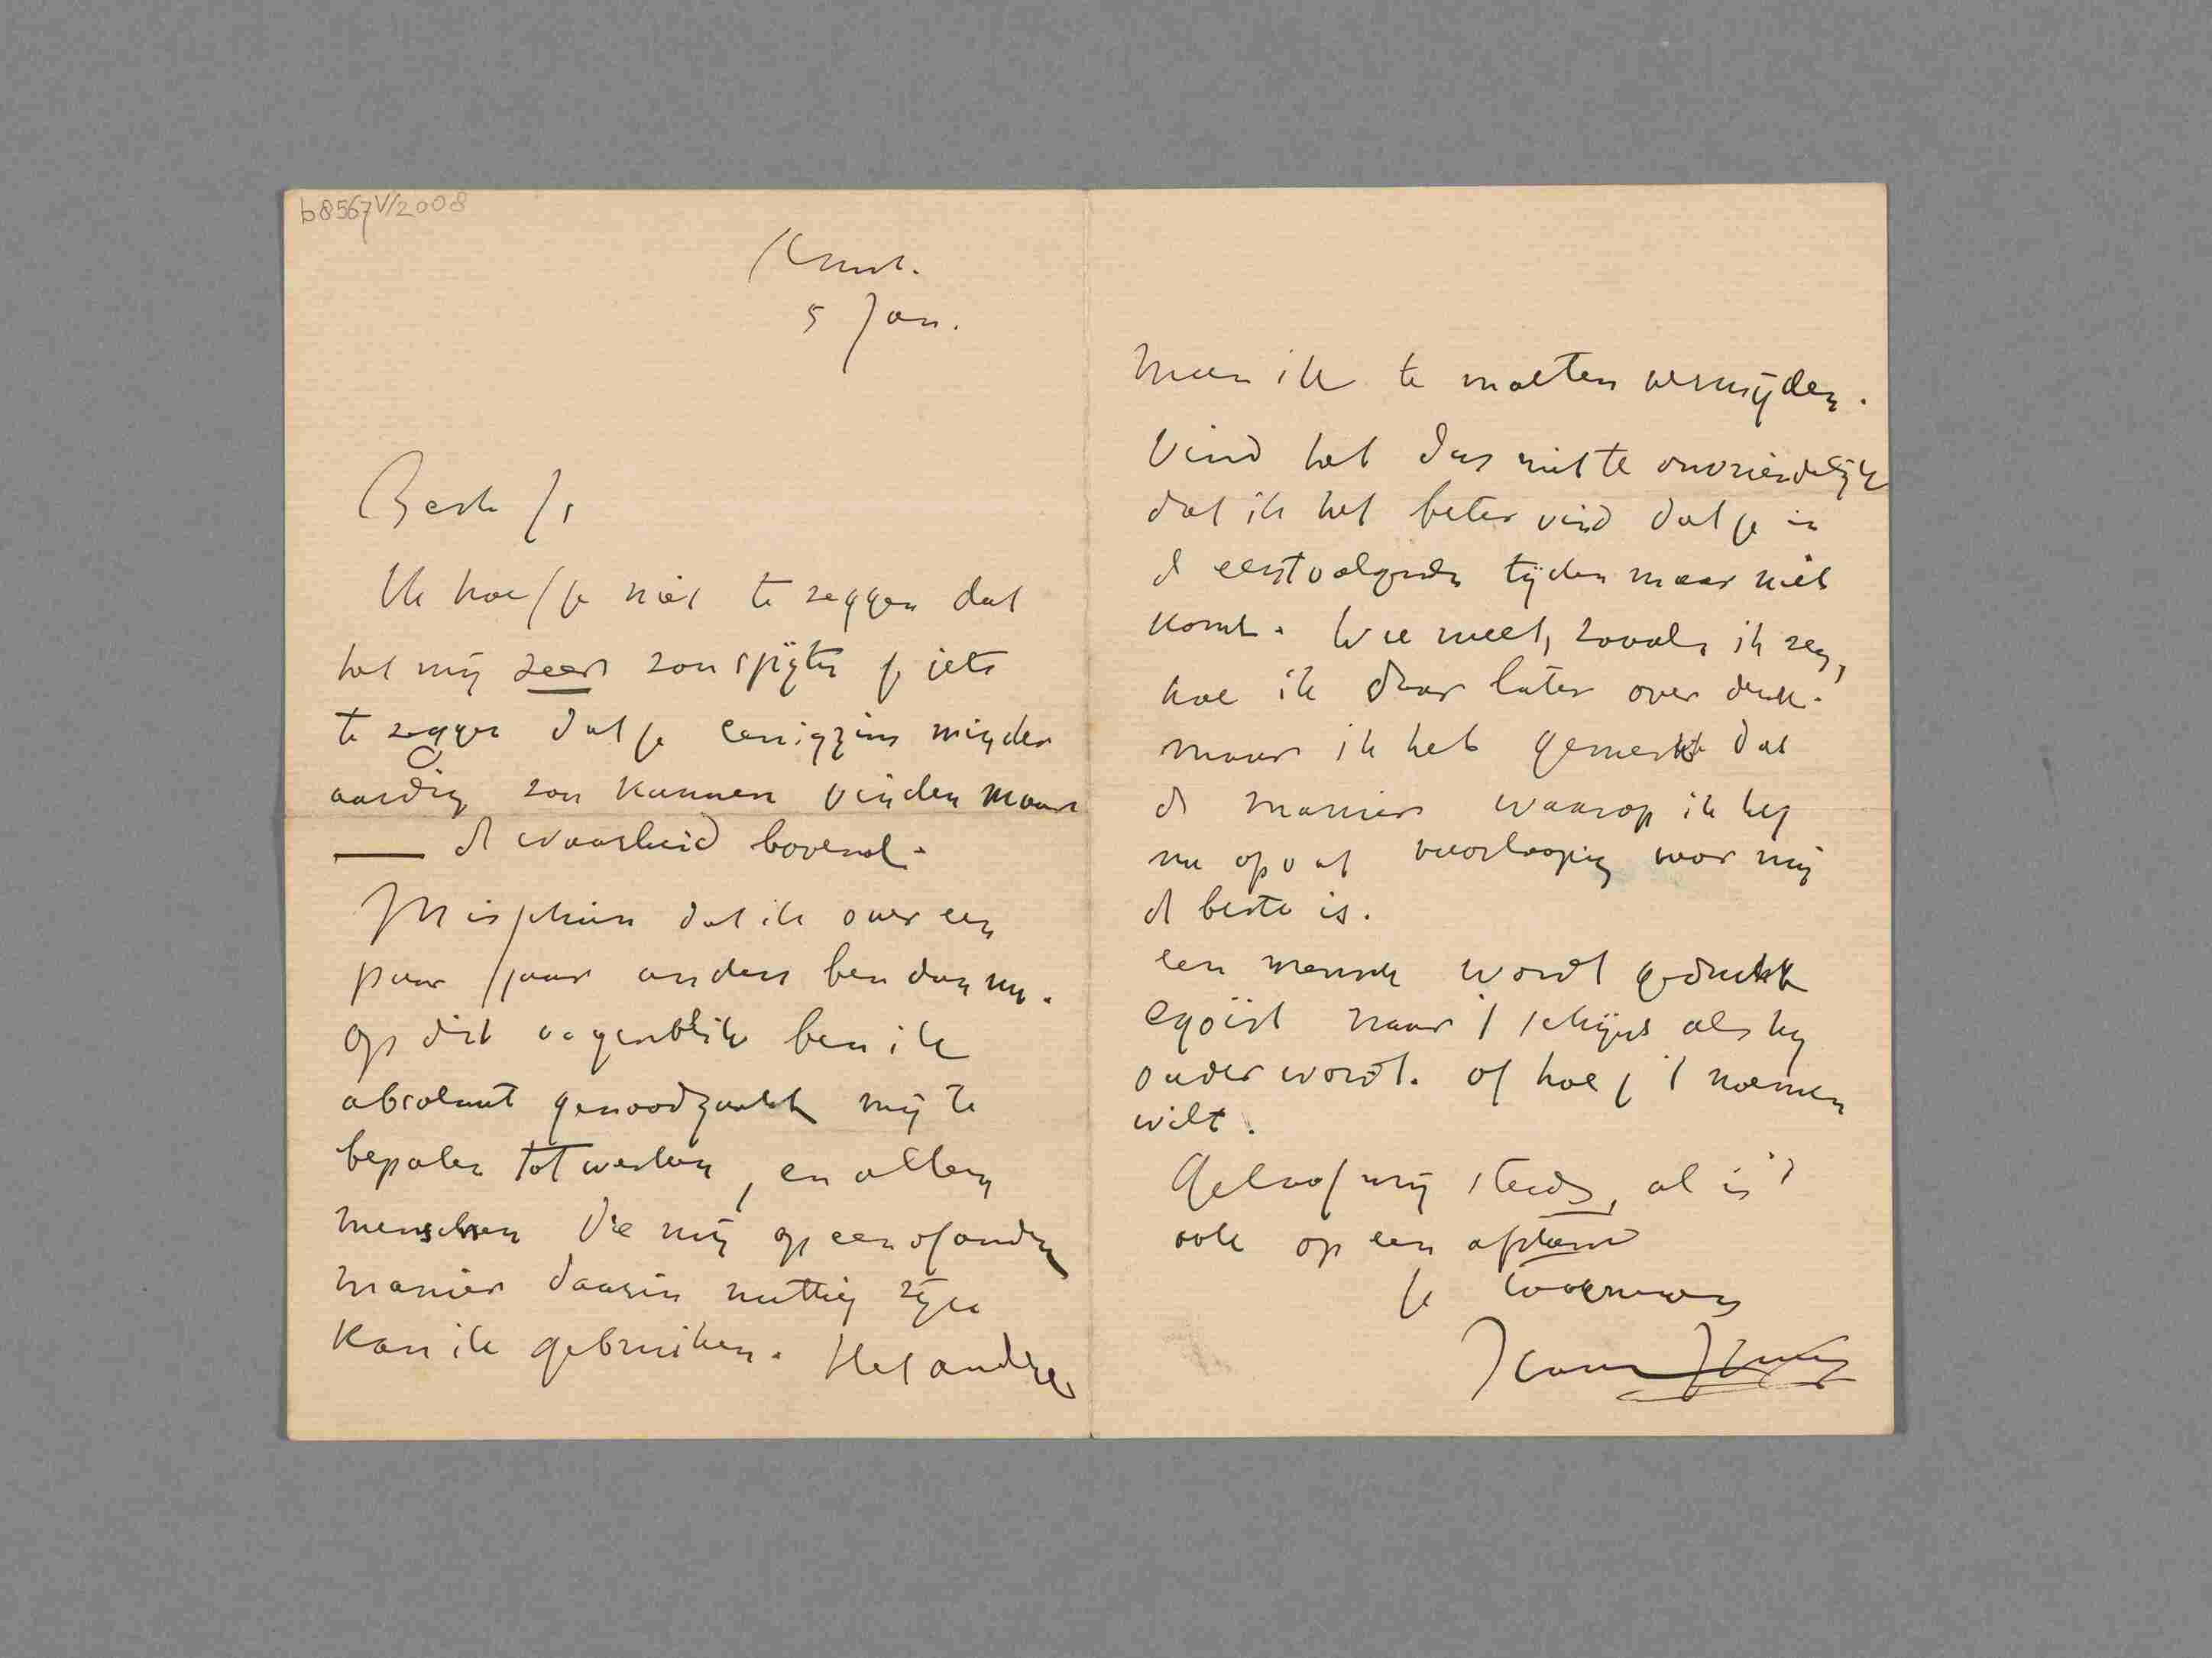 b8567V/2008
5 Jan.
Beste
Ik hoef je niet te zeggen dat
het mij zeer zou spijten je iets
te zeggen dat je eenigzins minder
aardig zou kunnen vinden maar
de waarheid bovenal.
Misschien dat ik over een
paar jaar anders ben dan nu.
Op dit oogenblik ben ik
absoluut genoodzaakt mij te
bepalen tot werken, en alleen
menschen die mij op een of andere
manier daarin nuttig zijn
kan ik gebruiken. Het andere
meen ik te moeten vermijden.
Vind het dus niet te onvriendelijk
dat ik het beter vind dat je in
de eerstvolgende tijden maar niet
komt. Wie weet, zooals ik zeg,
hoe ik daar later over denk.
maar ik heb gemerkt dat
de manier waarop ik het
nu opvat voorloopig voor mij
de beste is.
een mensch wordt
egoïst naar 't schijnt als hij
ouder wordt. of hoe je 't noemen
wilt.
Geloof mij steeds, al is 't
ook op een afstand
je toegenegen